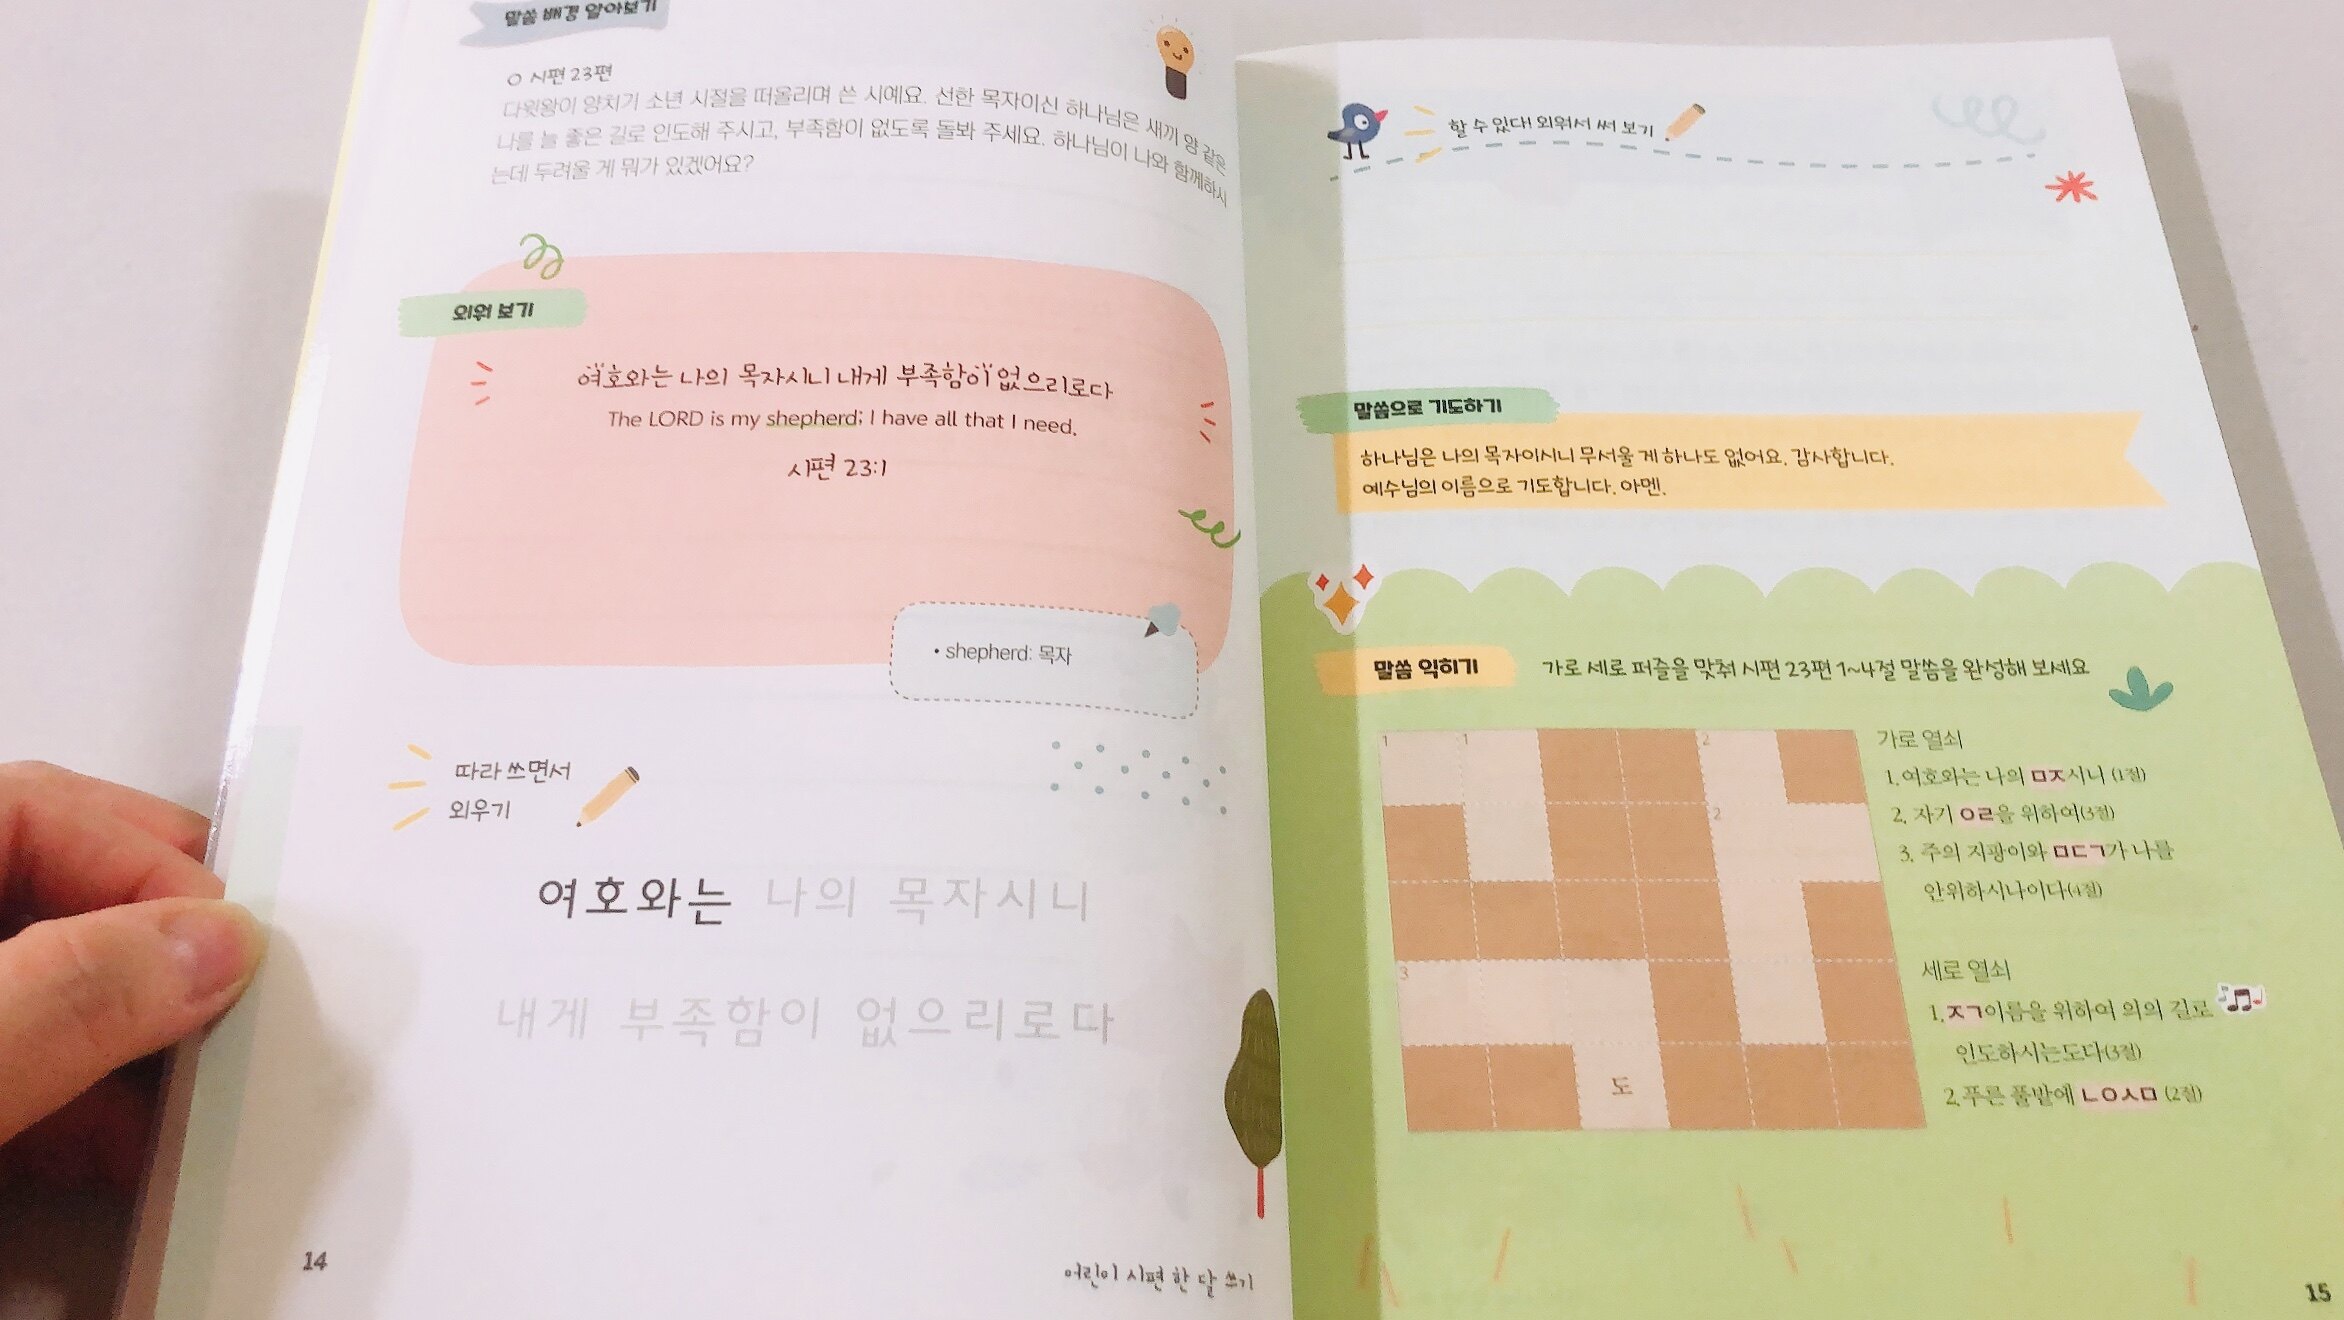 말씀 배경 알아보기
시편 23편
다윗왕이 양치기 소년 시절을 떠올리며 쓴 시예요. 선한 목자이신 하나님은 새끼 양 같은
나를 늘 좋은 길로 인도해 주시고, 부족함이 없도록 돌봐 주세요. 하나님이 나와 함께하시
는데 두려울 게 뭐가 있겠어요?
외워 보기
여호와는 나의 목자시니 내게 부족함이 없으리로다
The LORD is my shepherd; I have all that I need.
시편 23:1
• shepherd: 목자
따라 쓰면서
외우기
여호와는 나의 목자시니
내게 부족함이 없으리로다
14
어린이 시편 한 달 쓰기
할 수 있다! 외워서 써 보기
말씀으로 기도하기
하나님은 나의 목자이시니 무서울 게 하나도 없어요. 감사합니다.
예수님의 이름으로 기도합니다. 아멘.
말씀 익히기
가로 세로 퍼즐을 맞춰 시편 23편 1~4절 말씀을 완성해 보세요
1 1 2
2
3
도
가로 열쇠
1. 여호와는 나의 ㅁㅈ시니 (1절)
2. 자기 ㅇㄹ을 위하여(3절)
3. 주의 지팡이와 ㅁㄷㄱ가 나를
안위하시나이다(4절)
세로 열쇠
1. ㅈㄱ이름을 위하여 의의 길로
인도하시는도다(3절)
2. 푸른 풀밭에 ㄴㅇㅅㅁ (2절)
15